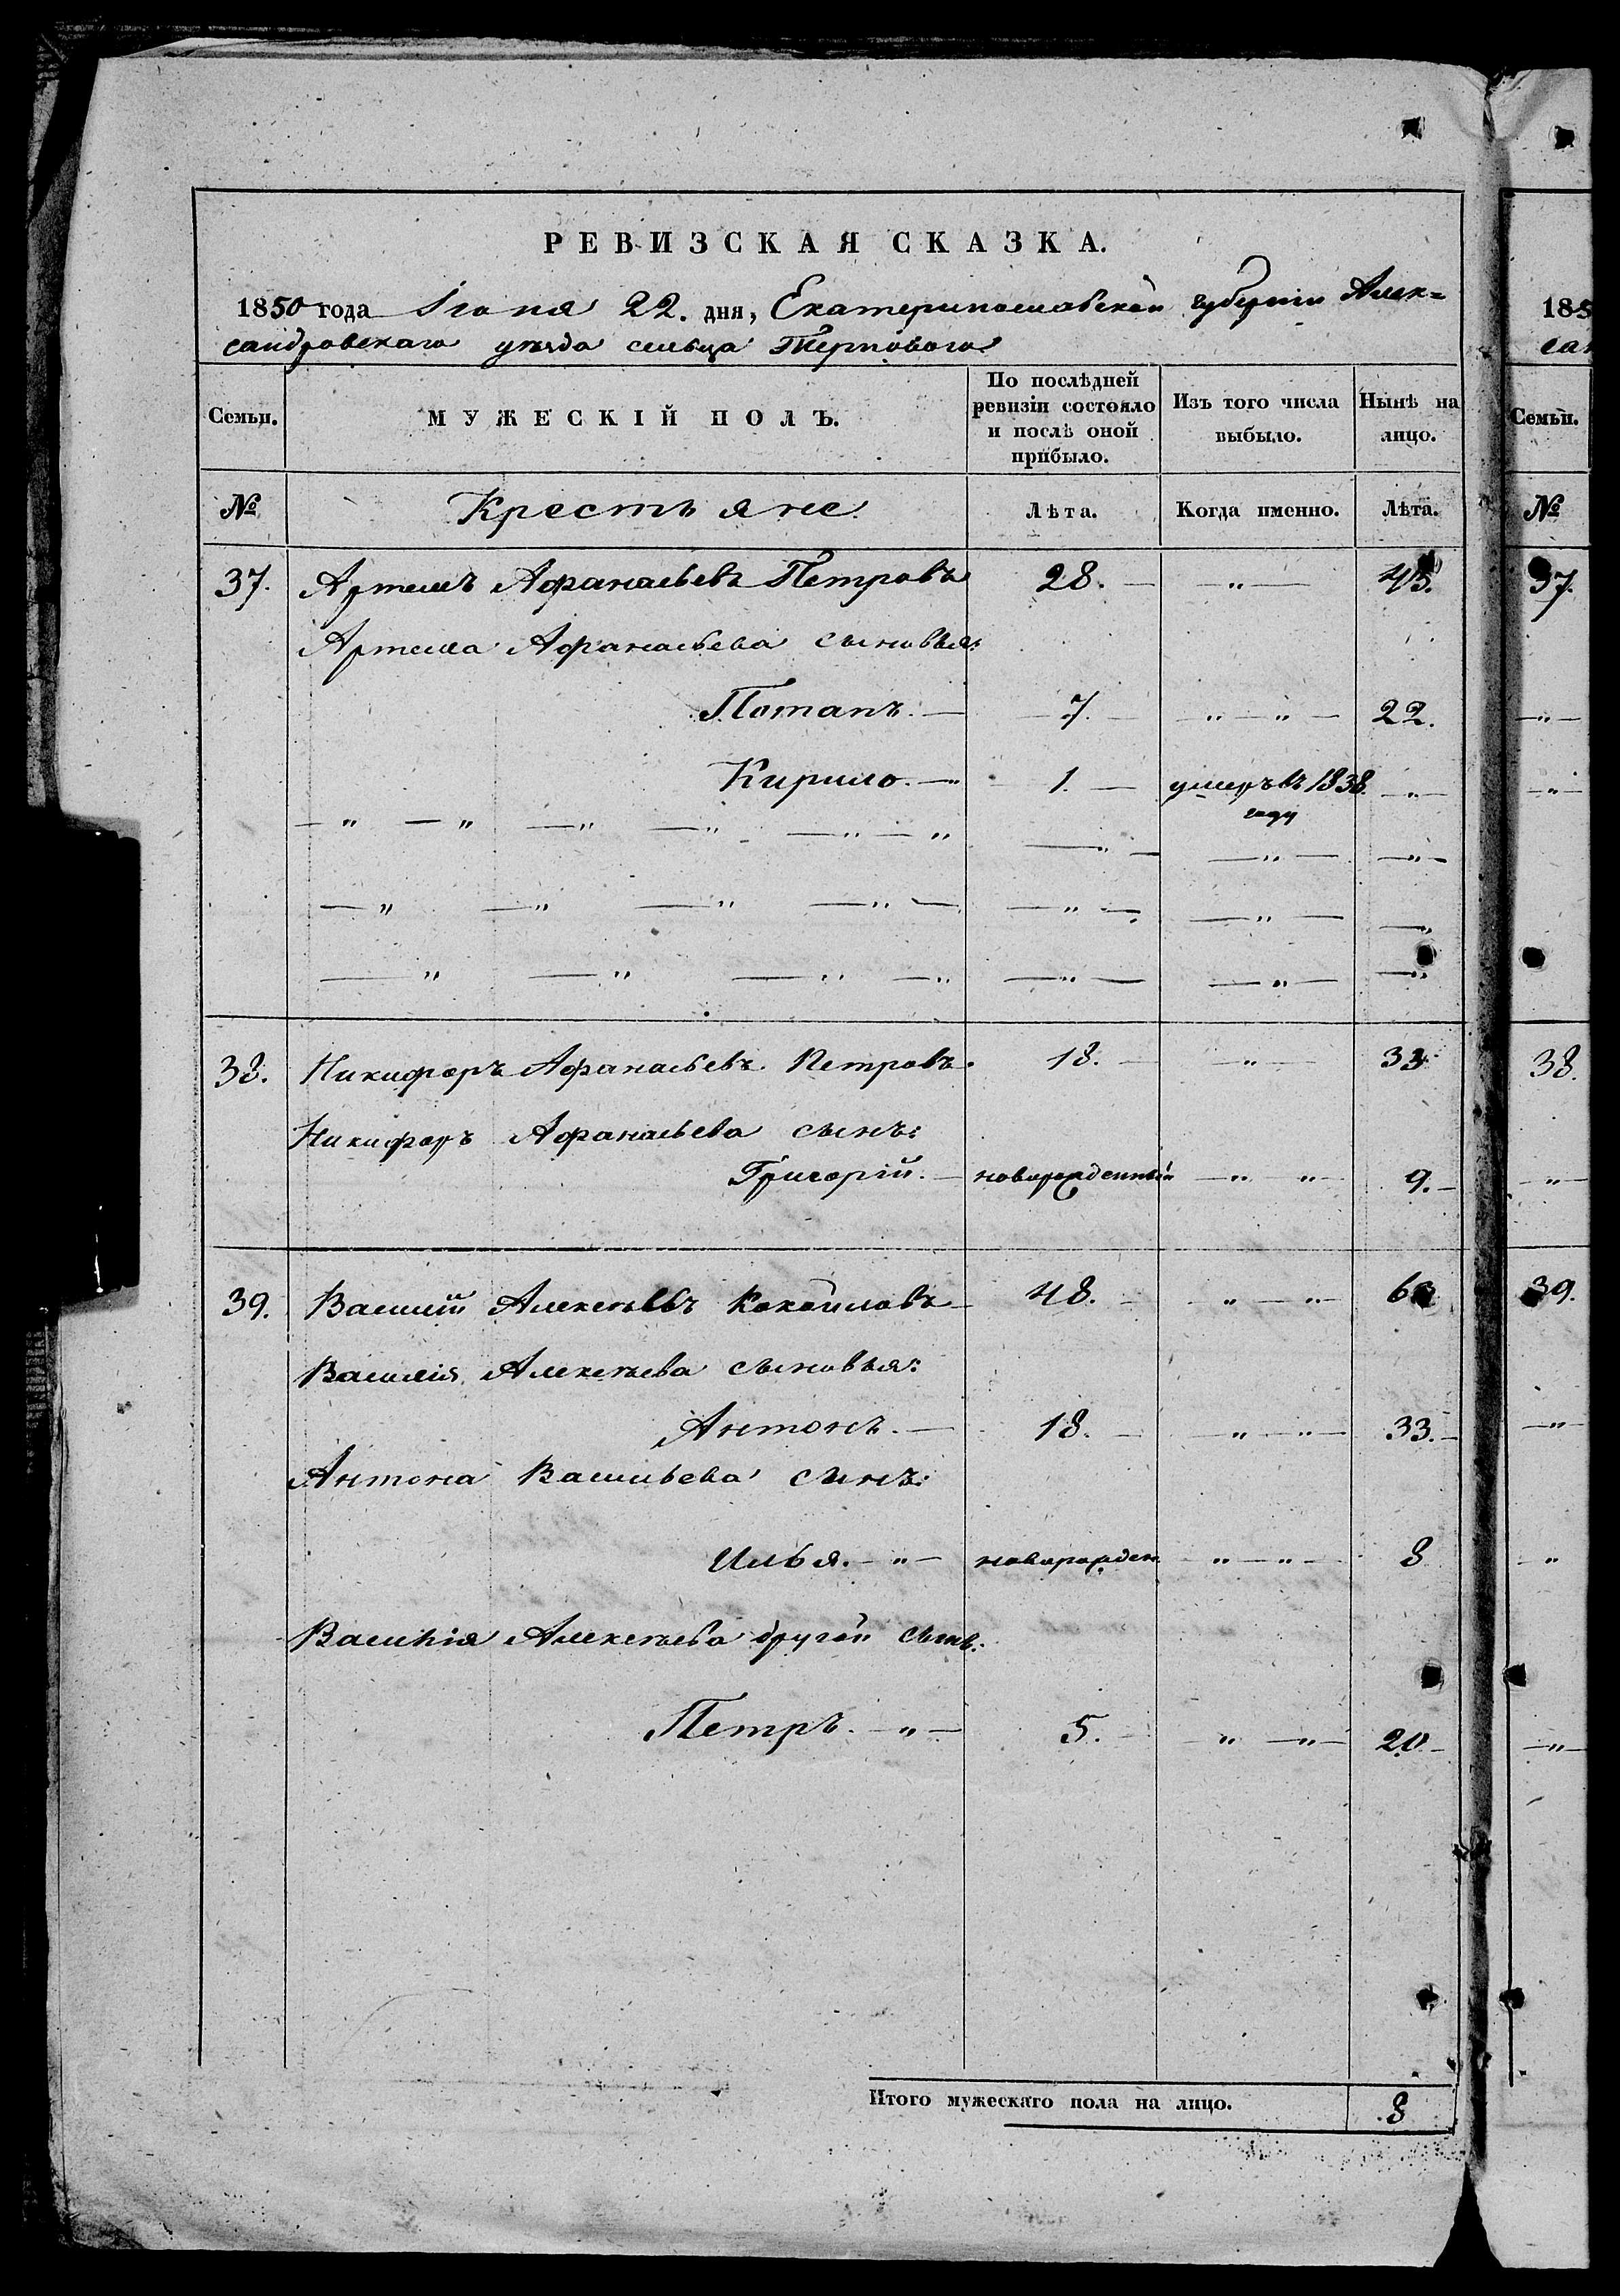 РЕВИЗСКАЯ СКАЗКА.
1850 года Іюня 22. дня, Екатеринославской губерніи Алек=
сандровскаго уѣзда сельца Терноваго
Семьи. МУЖЕСКІЙ ПОЛЪ. По послѣдней ревизіи состояло и послѣ оной прибыло. Изъ того числа выбыло. Нынѣ на лицо.
№ Крестьяне Лѣта. Когда именно. Лѣта.
37. Артемъ Афанасьевъ Петровъ 28. — „ — 43.
Артема Афанасьева сыновья:
Потапъ. — 7. — „ — „ — 22.
Кирило. — 1. — умеръ въ 1838. — „ —
году
38. Никифоръ Афанасьевъ Петровъ. 18. — „ — 33
Никифоръ Афанасьева сынъ:
Григорій. — новорожденный — „ „ — 9. —
39. Василій Алексѣевъ 48. — „ — „ — 63
Василія Алексѣева сыновья:
Антонъ. — 18. — „ — „ — 33. —
Антона Васильева сынъ:
Илья. — „ — новорожден „ — „ — 8
Василія Алексѣева другой сынъ:
Петръ. — „ — 5. — „ — „ — 20 —
Итого мужескаго пола на лицо. 8
185
сан
Семьи.
№
37.
38.
39.